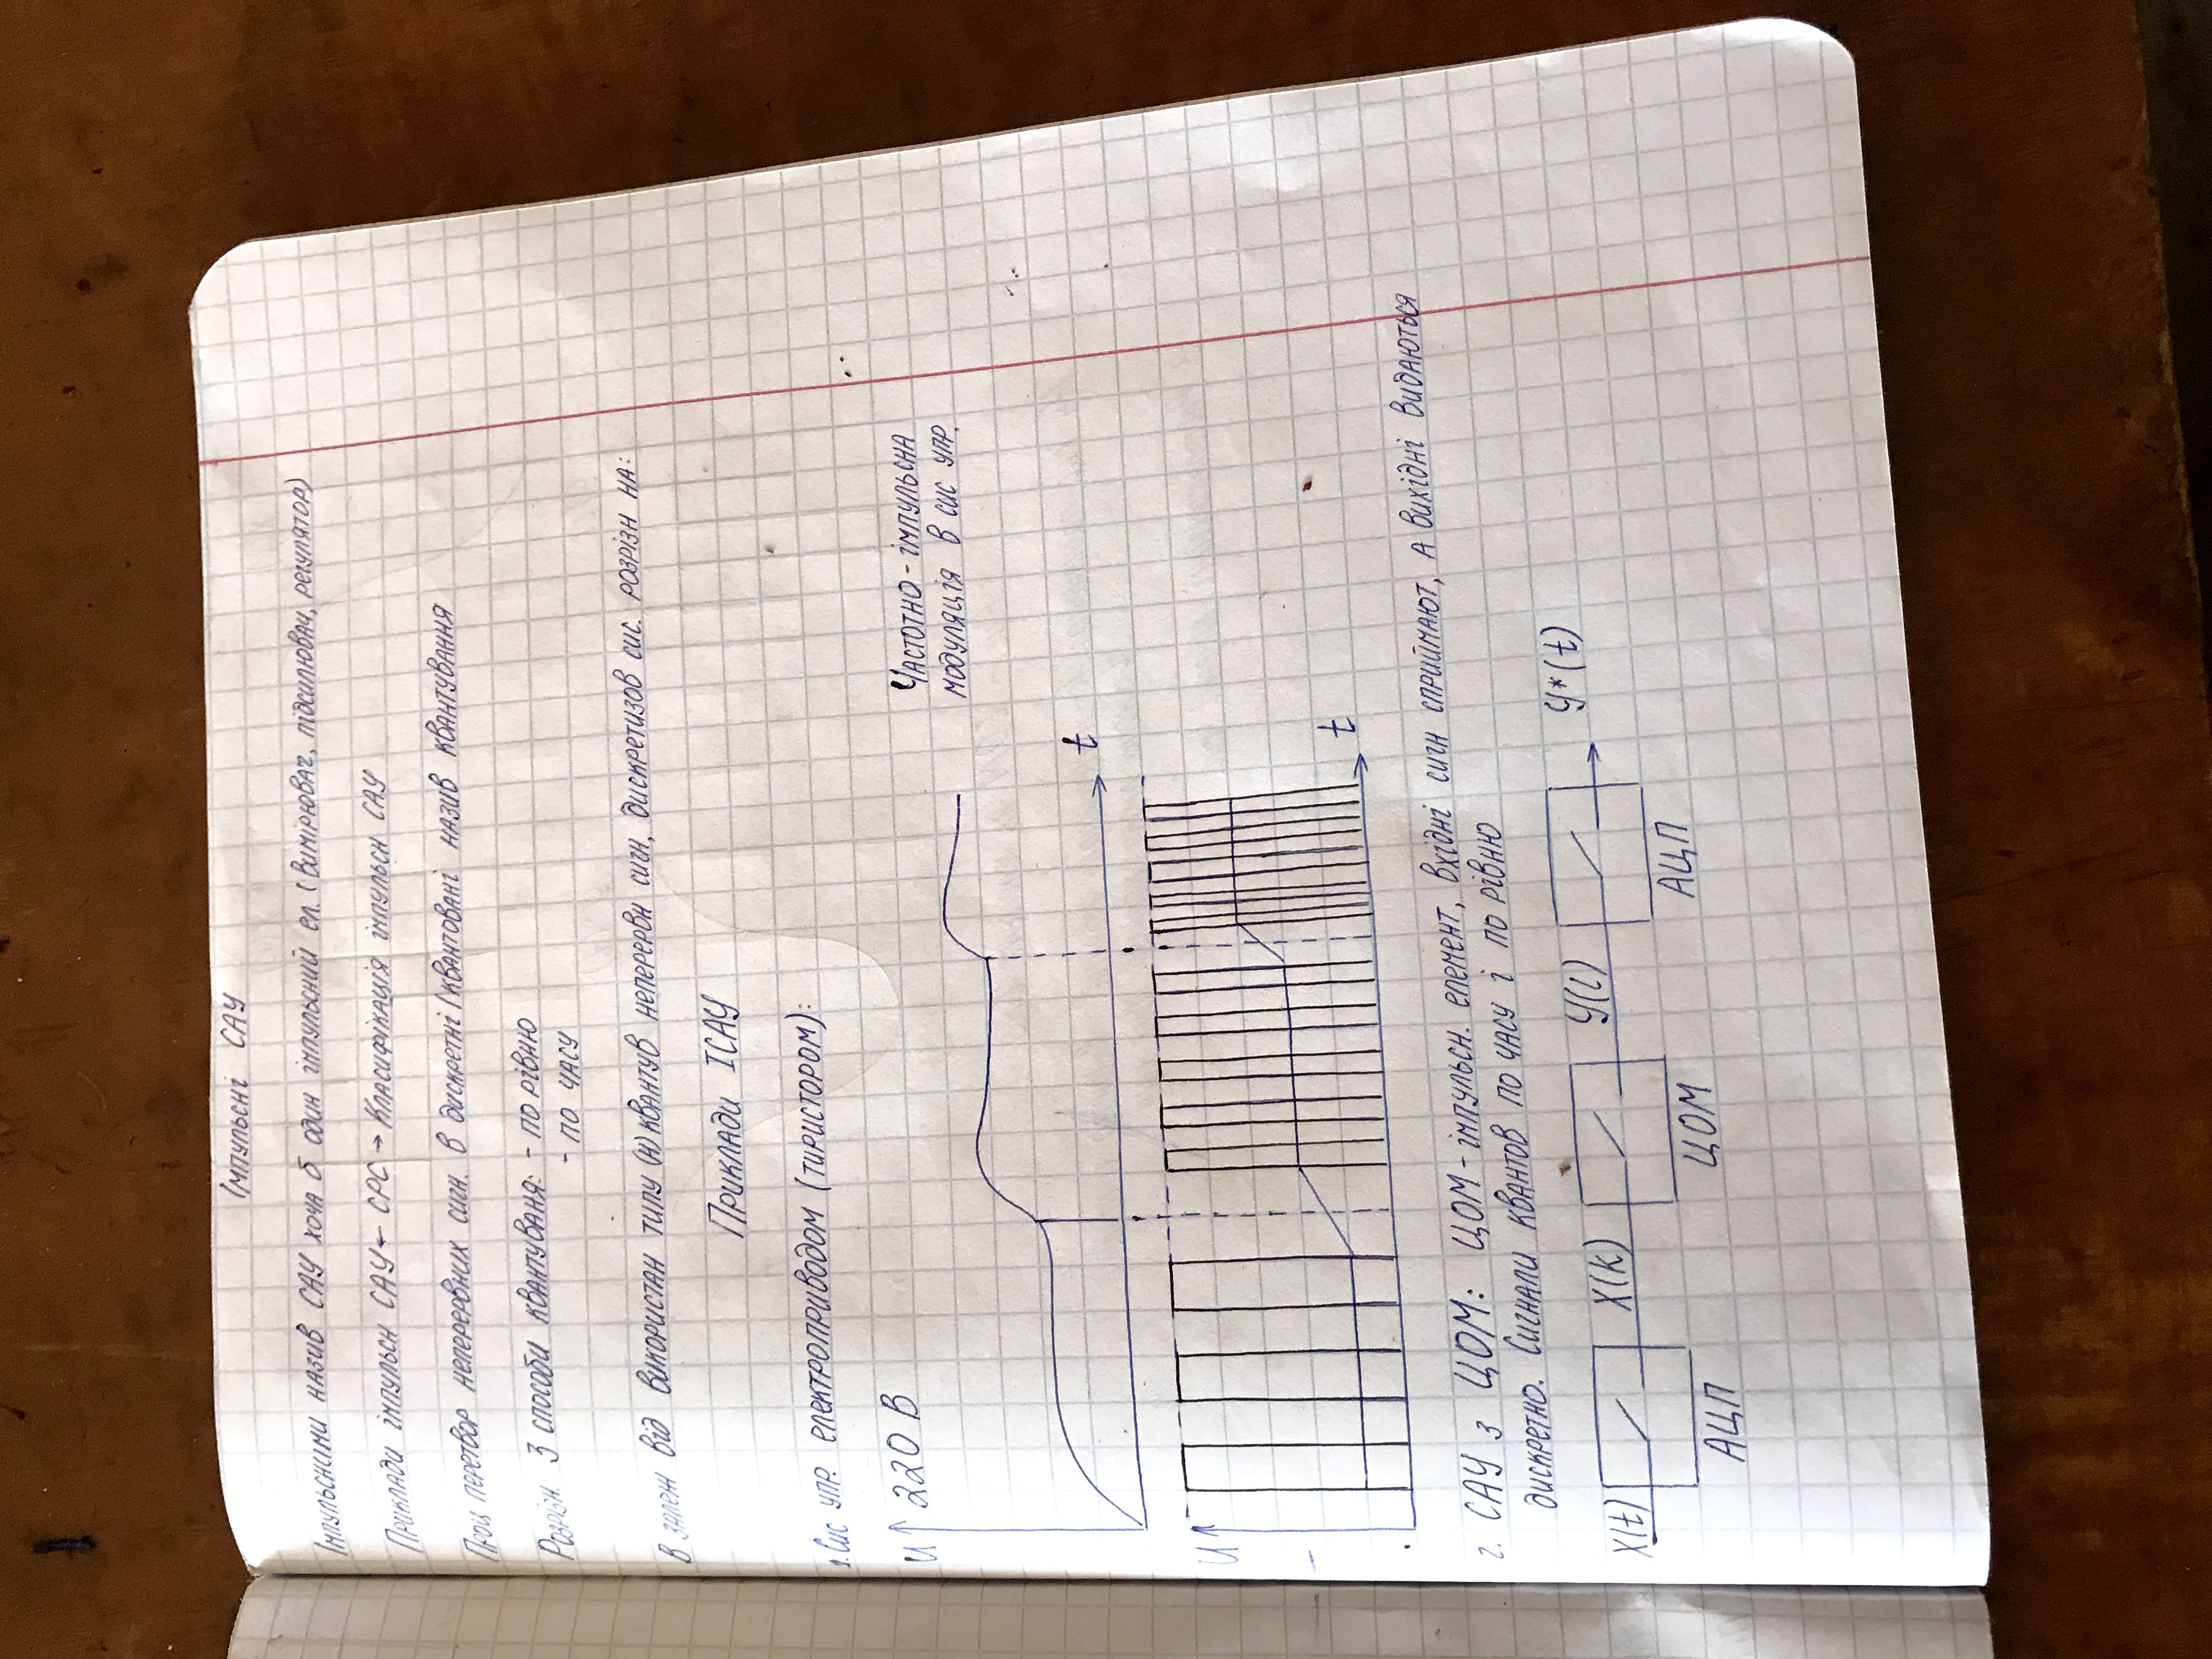 Імпульсні САУ
Імпульсними назив САУ хоча б один імпульсний ел. (вимірювач, підсилювач, регулятор)
Приклади імпульсн САУ ← СРС → Класифікація імпульсн САУ
Проц перетвор неперервних сигн. в дискретні/квантовані назив квантування
Розрізн. 3 способи квантуваня: - по рівню
- по часу
В залеж від використан типу (н) квантув неперервн сигн, дискретизов сис. розрізн на:
Приклади ІСАУ
1. Сис упр. електроприводом (тиристором):
U 220 В
Частотно-імпульсна
модуляція в сис упр.
t
U
t
2. САУ з ЦОМ: ЦОМ - імпульсн. елемент, вхідні сигн сприймают, а вихідні видаються
дискретно. Сигнали квантов по часу і по рівню
X(t) X(k) У(i) У*(t)
АЦП ЦОМ АЦП